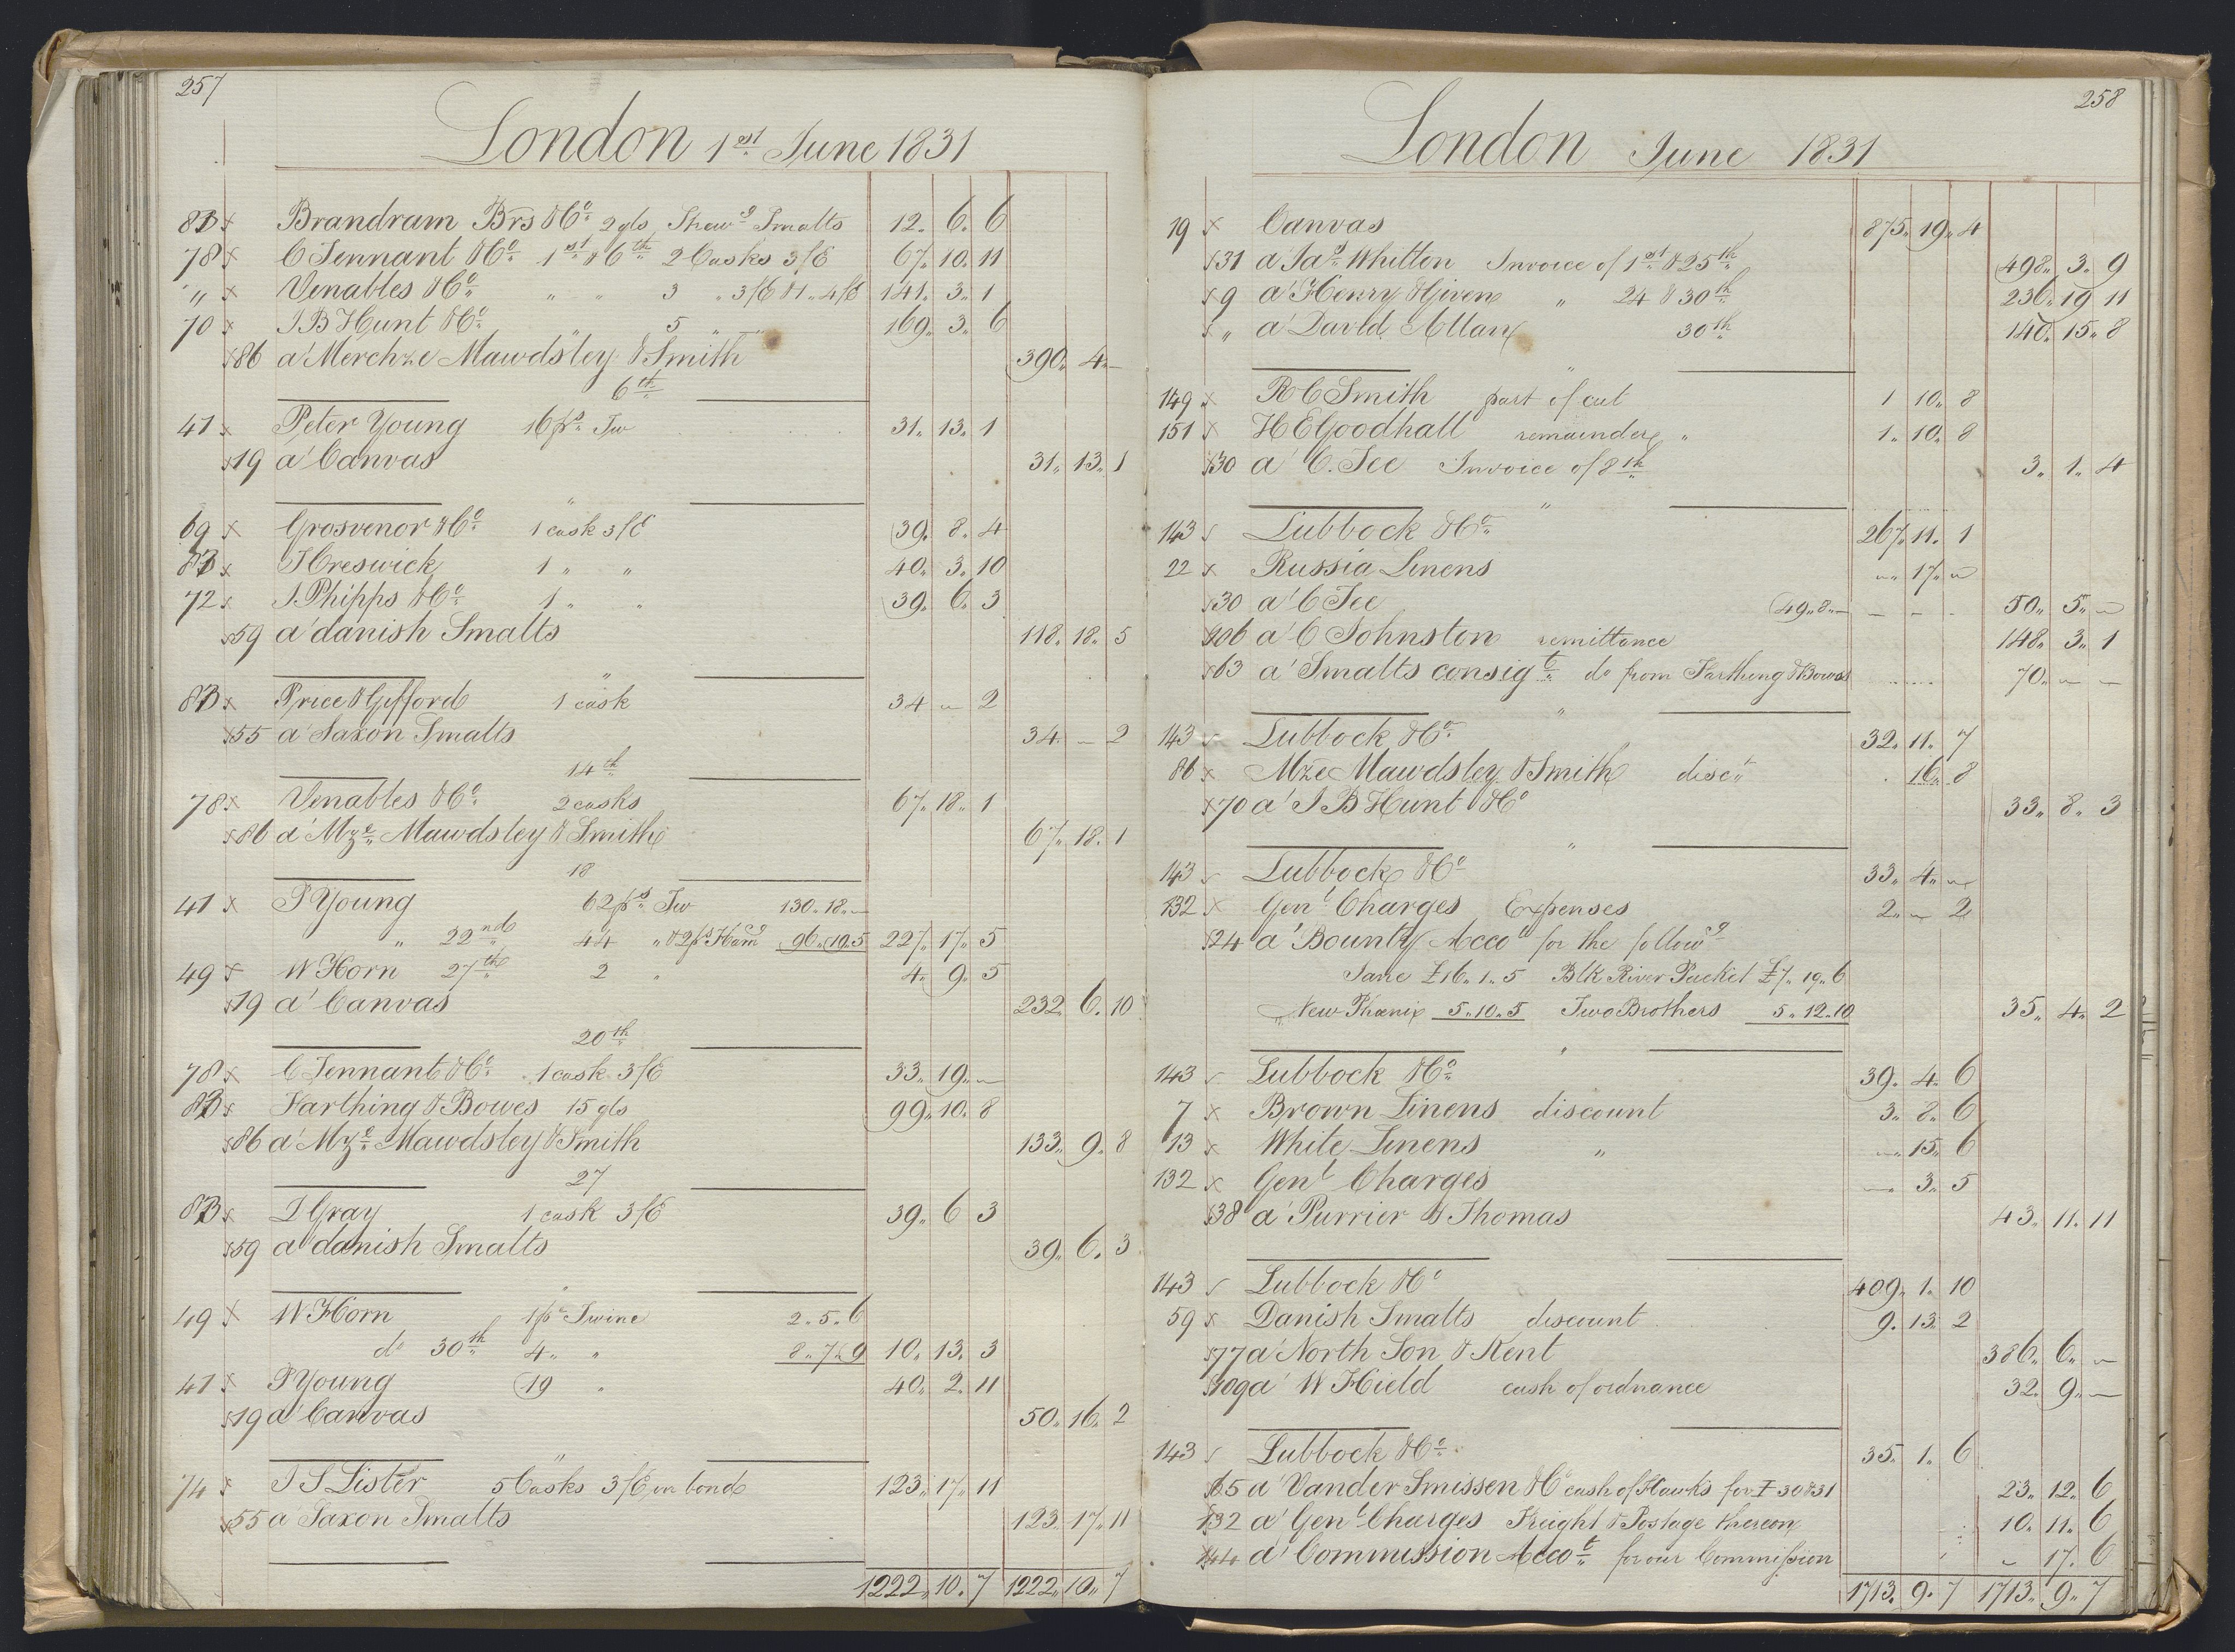 257
London 1st June 1831
83 x Brandram Brs & Co 2 gls Strewg Smalts 12. 6. 6
78 x C Tennant & Co 1st & 6th 2 Casks 3/E 67. 10. 11
" x Venables & Co " " 3 " 3/E & 1 " 4/E 141. 3. 1
70 x J B Hunt & Co " 5 " " 169. 3. 6
x86 a Merchze Mawdsley & Smith 390. 4. —
6th
41 x Peter Young 16 ps Tw 31. 13. 1
x19 a Canvas 31. 13. 1
"
69 x Grosvenor & Co 1 cask 3/E 39. 8. 4
83 x J Creswick 1 " " 40. 3. 10
72 x J Phipps & Co 1 " " 39. 6. 3
x59 a danish Smalts 118. 18. 5
"
83 x Price & Gifford 1 cask 34 — 2
x55 a Saxon Smalts 34. — 2
14th
78 x Venables & Co 2 casks 67. 18. 1
x86 a Mze Mawdsley & Smith 67. 18. 1
18
41 x P Young 62 ps Tw 130. 18. —
" 22nd 44 " & 2 ps Hamcg 96. 19. 5 227. 17. 5
49 x W Horn 27th 2 " 4. 9. 5
x19 a Canvas 232. 6. 10
20th
78 x C Tennant & Co 1 cask 3/E 33. 19. —
83 x Farthing & Bowes 15 gls 99. 10. 8
x86 a Mze Mawdsley & Smith 133. 9. 8
27
83 x I Gray 1 cask 3/E 39. 6 3
x59 a danish Smalts 39. 6. 3
"
49 x W Horn 1 ps Twine 2. 5. 6
do 30th 4 " " 8. 7. 9 10. 13. 3
41 x P Young 19 " 40. 2. 11
x19 a Canvas 50. 16. 2
"
74 x J S Lister 5 Casks 3/E in bond 123. 17. 11
x55 a Saxon Smalts 123. 17. 11
1222. 10. 7 1222. 10. 7
258
London June 1831
19 x Canvas 875. 19. 4
x31 a Jas Whitton Invoice of 1st & 25th 498. 3. 9
x9 a Henry Given " 24 & 30th 236. 19 11
x " a David Allan 30th 140. 15. 8
"
149 x R C Smith part of cut 1 10. 8
151 x H E Goodhall remainder " 1. 10. 8
x30 a C. Tee Invoice of 8th 3. 1. 4
"
143 Lubbock & Co 267. 11. 1
22 x Russia Linens — 17. —
x30 a C Tee 49. 8. — — — - 50. 5. —
x106 a C Johnston remittance 148. 3. 1
x63 a Smalts consigt do from Farthing & Bowes 70. — —
"
143 Lubbock & Co 32. 11. 7
86 x Mze Mawdsley & Smith disct 16. 8
x70 a J B Hunt & Co 33. 8. 3
"
143 Lubbock & Co 33. 4. —
132 x Genl Charges Expenses 2. — 2
x24 a Bounty Accot for the followg
Jane £16. 1. 5 Blk River Packet £7. 19. 6
" New Phœnix 5. 10. 5 Two Brothers 5. 12. 10 35. 4. 2
"
143 Lubbock & Co 39. 4. 6
7 x Brown Linens discount 3. 8. 6
13 x White Linens " — 15. 6
132 x Genl Charges — 3. 5
x38 a Purrier & Thomas 43. 11. 11
143 Lubbock & Co 409. 1. 10
59 x Danish Smalts discount 9. 13. 2
x77 a North Son & Kent 386. 6. —
x109 a W Hield cash of ordnance 32. 9. —
143 Lubbock & Co 35. 1. 6
x65 a Vander Smissen & Co cash of Hawks for I 30 & 31 23. 12. 6
x132 a Genl Charges Freight & Postage thereon 10. 11. 6
x144 a Commission Accot for our Commission — 17. 6
1713. 9. 7 1713. 9. 7